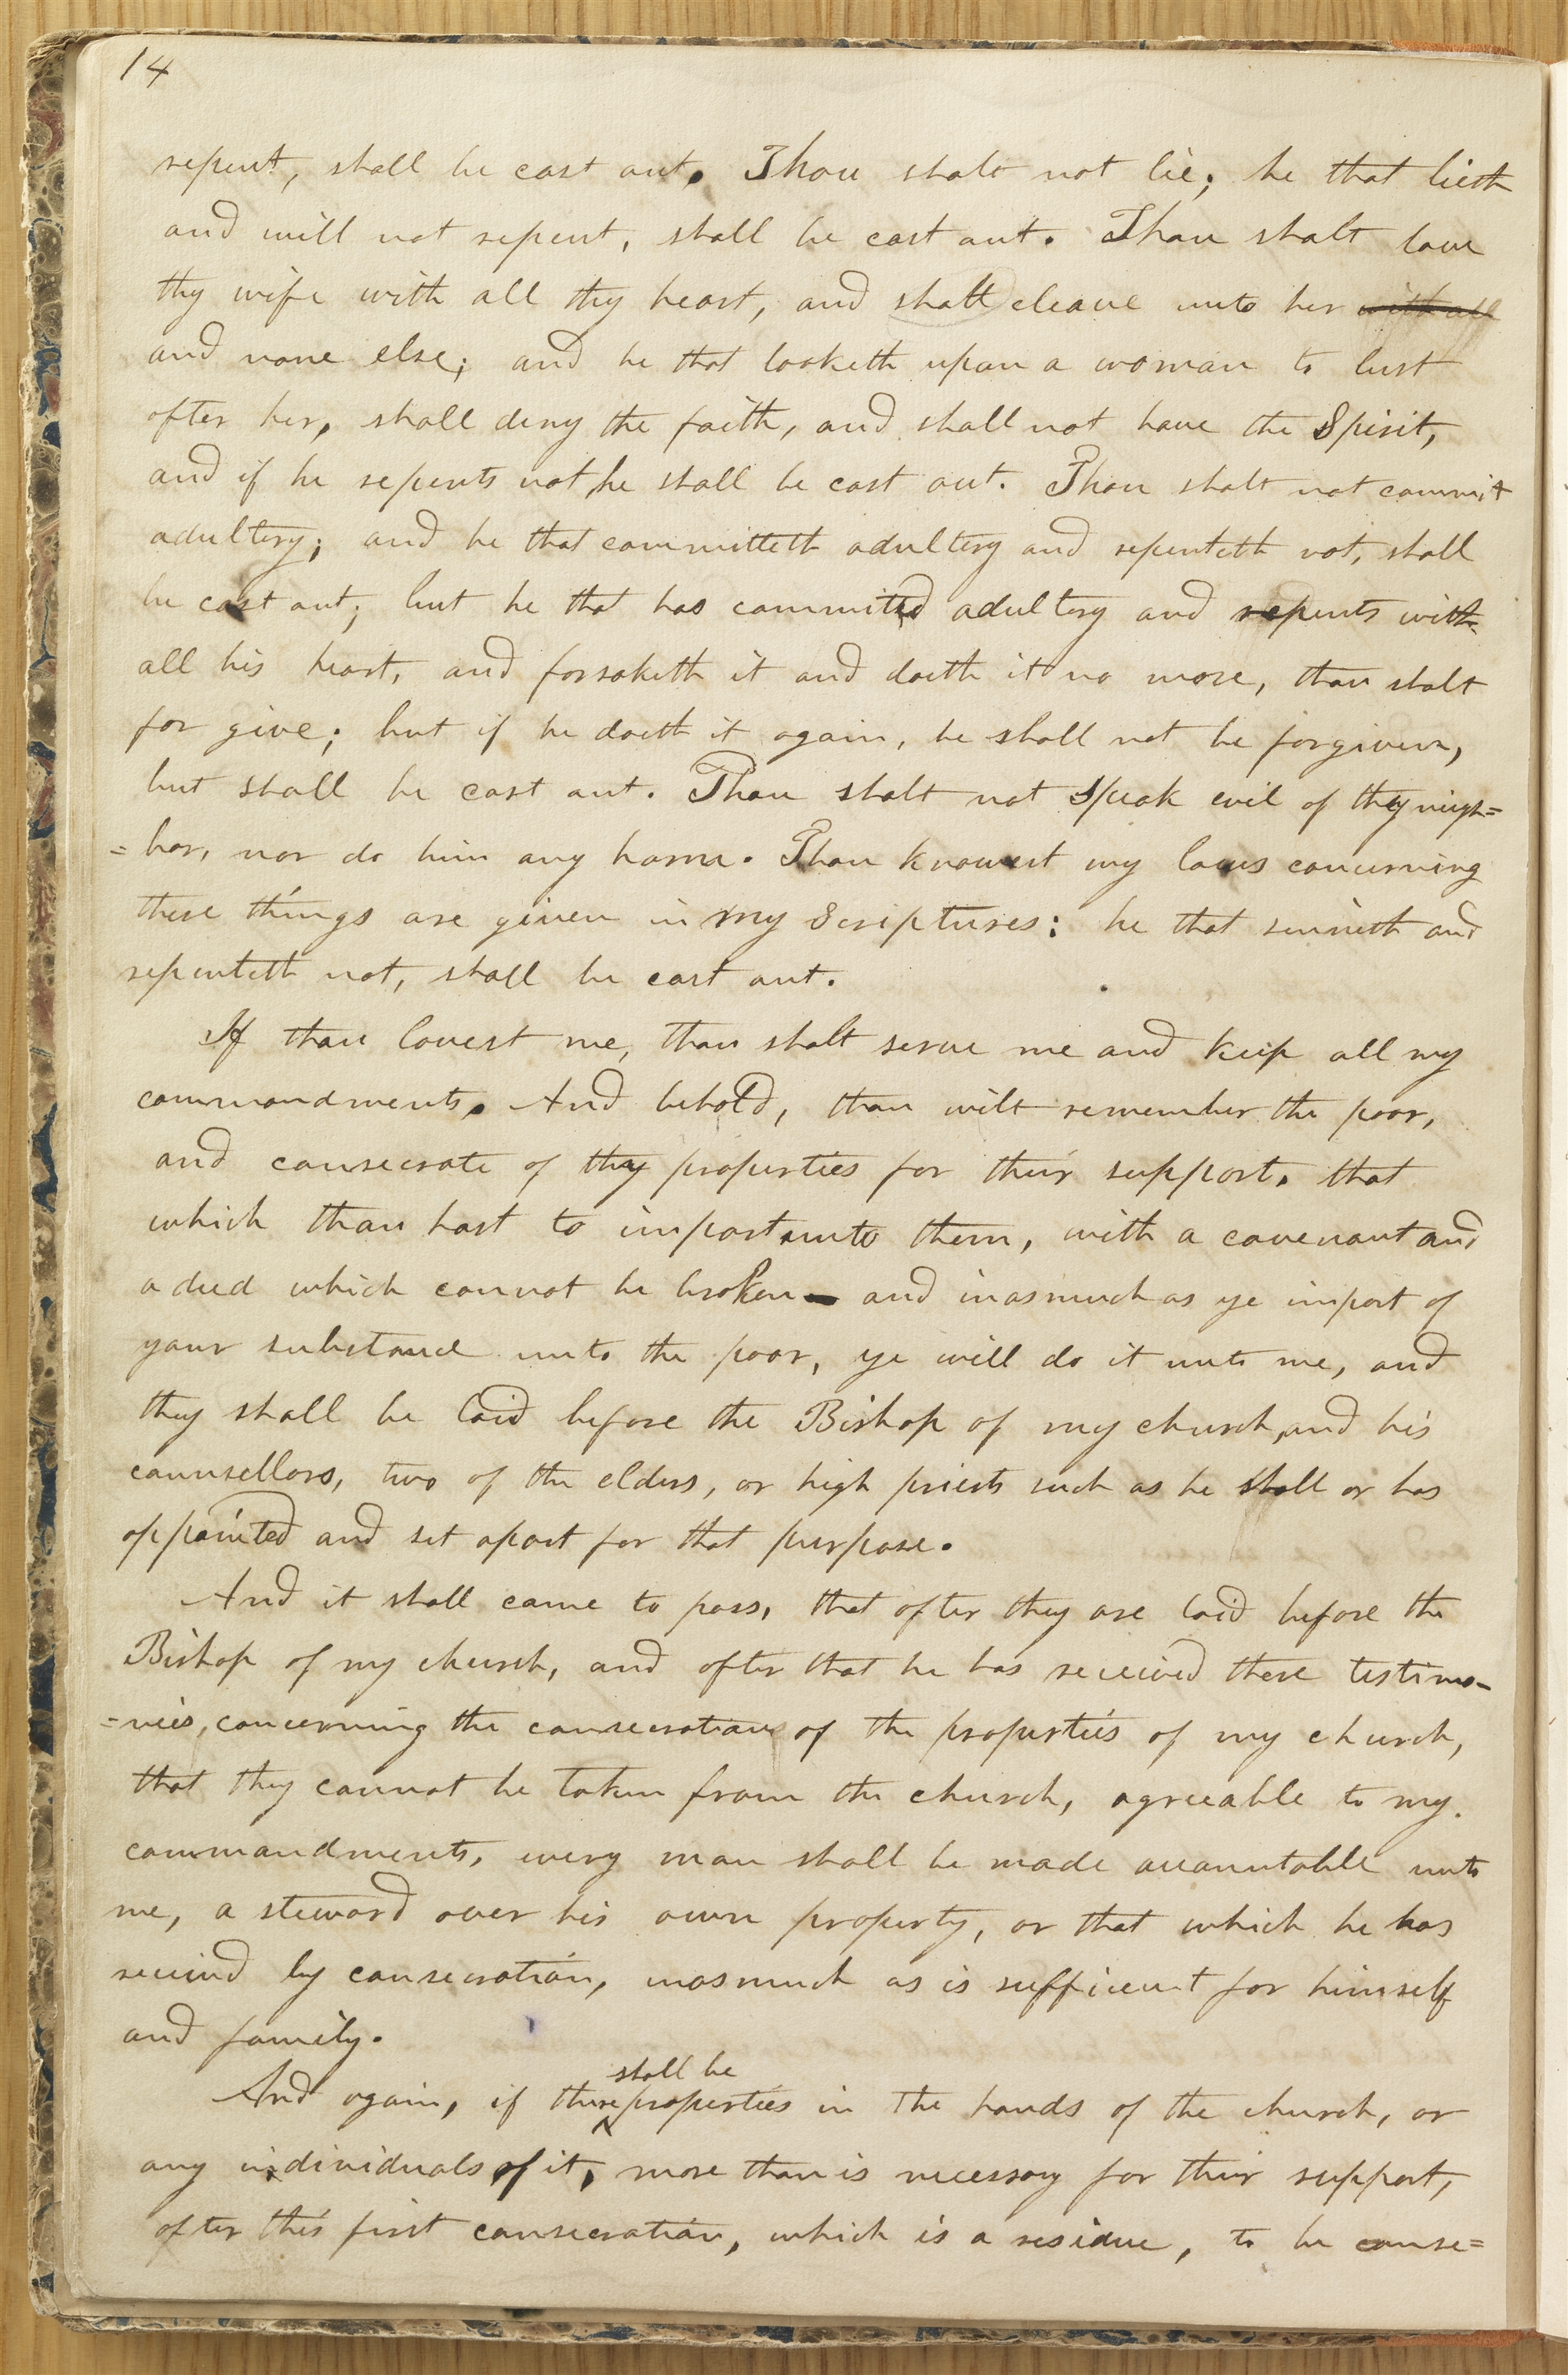 14
repent, shall be cast out. Thou shalt not lie; he that lieth
and will not repent, shall be cast out. Thou shalt love
thy wife with all thy heart, and shall cleave unto her with all
and none else; and he that looketh upon a woman to lust
after her, shall deny the faith, and shall not have the Spirit,
and if he repents not, he shall be cast out. Thou shalt not commit
adultery; and he that committeth adultery and repenteth not, shall
be cast out; but he that has committed adultery and repents with
all his heart, and forsaketh it and doeth it no more, thou shalt
for give; but if he doeth it again, he shall not be forgiven,
but shall be cast out. Thou shalt not speak evil of thy neigh=
=bor, nor do him any harm. Thou knowest my laws concerning
these things are given in my Scriptures: he that sinneth and
repenteth not, shall be cast out.
If thou lovest me, thou shalt serve me and keep all my
commandments. And behold, thou wilt remember the poor,
and consecrate of thy properties for their support, that
which thou hast to impart unto them, with a covenant and
a deed which cannot be broken— and inasmuch as ye impart of
your substance unto the poor, ye will do it unto me, and
they shall be laid before the Bishop of my church, and his
counsellors, two of the elders, or high priests such as he shall or has
appointed and set apart for that purpose.
And it shall come to pass, that after they are laid before the
Bishop of my church, and after that he has received these testimo-
=nies, concerning the consecration of the properties of my church,
that they cannot be taken from the church, agreeable to my
commandments, every man shall be made accountable unto
me, a steward over his own property, or that which he has
received by consecration, inasmuch as is sufficient for himself
and family.
shall be
And again, if there properties in the hands of the church, or
any individuals of it, more than is necessary for their support,
after this first consecration, which is a residue, to be conse=